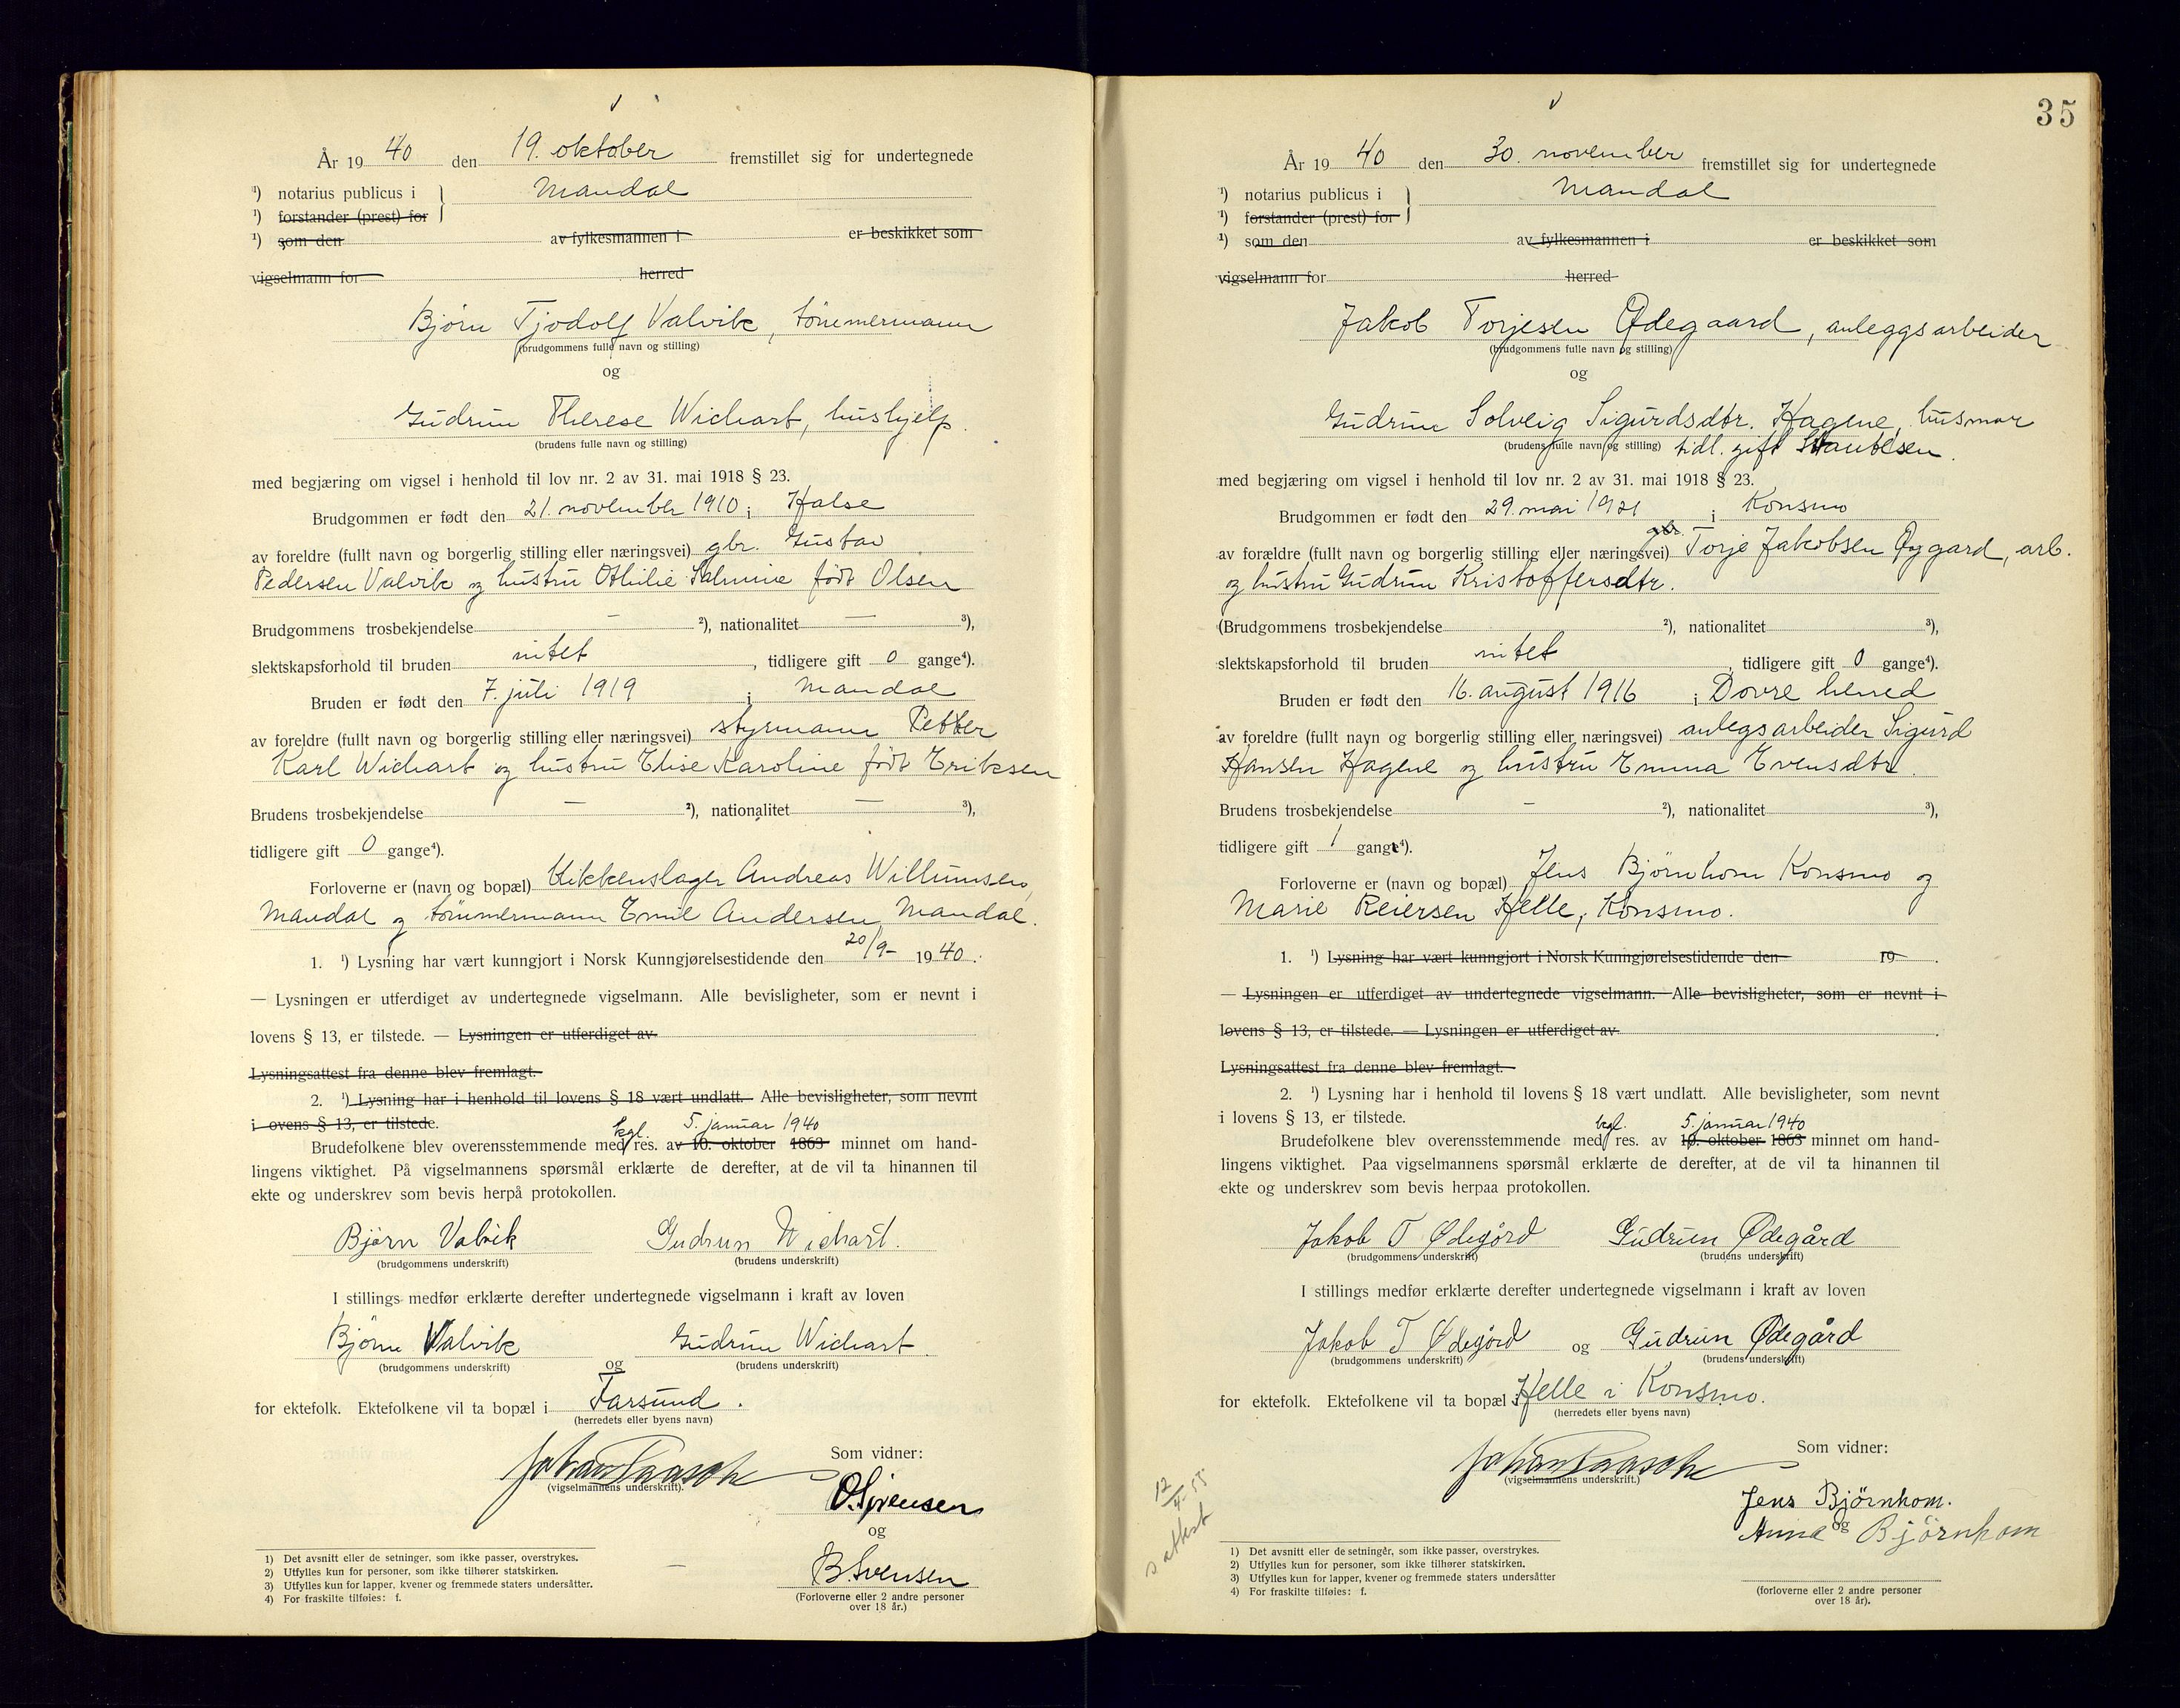 År 19 40 den 19. oktober fremstillet sig for undertegnede
¹) notarius publicus i Mandal
¹) forstander (prest) for
¹) som den av fylkesmannen i er beskikket som
vigselmann for herred
Bjørn Tjodolf Valvik, tömmermann
(brudgommens fulle navn og stilling)
og
Gudrun Therese Wichart, hushjelp.
(brudens fulle navn og stilling)
med begjæring om vigsel i henhold til lov nr. 2 av 31. mai 1918 § 23.
Brudgommen er født den 21. november 1910 i Halse
av foreldre (fullt navn og borgerlig stilling eller næringsvei) gbr. Gustav
Pedersen Valvik og hustru Othilie Salmine født Olsen
Brudgommens trosbekjendelse — ²), nationalitet — ³),
slektskapsforhold til bruden intet, tidligere gift 0 gange⁴).
Bruden er født den 7. juli 1919 i Mandal
av foreldre (fullt navn og borgerlig stilling eller næringsvei) styrmann Petter
Karl Wichart og hustru Elise Karoline født Eriksen
Brudens trosbekjendelse — ²), nationalitet — ³),
tidligere gift 0 gange⁴).
Forloverne er (navn og bopæl) blikkenslager Andreas Willumsen,
Mandal og tömmermann Emil Andersen, Mandal.
1. ¹) Lysning har vært kunngjort i Norsk Kunngjørelsestidende den 20/9– 1940.
— Lysningen er utferdiget av undertegnede vigselmann. Alle bevisligheter, som er nevnt i
lovens § 13, er tilstede. — Lysningen er utferdiget av
Lysningsattest fra denne blev fremlagt.
2. ¹) Lysning har i henhold til lovens § 18 vært undlatt. Alle bevisligheter, som nevnt
i ovens § 13, er tilstede.
kgl. 5. januar 1940
Brudefolkene blev overensstemmende med res. av 10. oktober 1863 minnet om hand-
lingens viktighet. På vigselmannens spørsmål erklærte de derefter, at de vil ta hinannen til
ekte og underskrev som bevis herpå protokollen.
Bjørn Valvik Gudrun Wichart.
(brudgommens underskrift) (brudens underskrift)
I stillings medfør erklærte derefter undertegnede vigselmann i kraft av loven
Bjørn Valvik og Gudrun Wichart
(brudgommens underskrift) (brudens underskrift)
for ektefolk. Ektefolkene vil ta bopæl i Farsund.
(herredets eller byens navn)
Johan Paasche
(vigselmannens underskrift).
Som vidner:
O. Sørensen
og
B. Svensen
(Forloverne eller 2 andre personer
over 18 år.)
1) Det avsnitt eller de setninger, som ikke passer, overstrykes.
2) Utfylles kun for personer, som ikke tilhører statskirken.
3) Utfylles kun for lapper, kvener og fremmede staters undersåtter.
4) For fraskilte tilføies: f.
35
År 19 40 den 30. november fremstillet sig for undertegnede
¹) notarius publicus i Mandal
¹) forstander (prest) for
¹) som den av fylkesmannen i er beskikket som
vigselmann for herred
Jakob Torjesen Ødegaard, anleggsarbeider
(brudgommens fulle navn og stilling)
og
Gudrun Solveig Sigurdsdtr. Hagene, husmor
(brudens fulle navn og stilling) tidl. gift
med begjæring om vigsel i henhold til lov nr. 2 av 31. mai 1918 § 23.
Brudgommen er født den 29. mai 1921 i Konsmo
av forældre (fullt navn og borgerlig stilling eller næringsvei) Torje Jakobsen Øygard, arb.
og hustru Gudrun Kristoffersdtr.
(Brudgommens trosbekjendelse ²), nationalitet ³),
slektskapsforhold til bruden intet, tidligere gift 0 gange⁴).
Bruden er født den 16. august 1916 i Dovre herred
av foreldre (fullt navn og borgerlig stilling eller næringsvei) anlegsarbeider Sigurd
Hansen Hagene og hustru Emma Evensdtr.
Brudens trosbekjendelse — ²), nationalitet ³),
tidligere gift 1 gange⁴).
Forloverne er (navn og bopæl) Jens Bjørnhom Konsmo og
Marie Reiersen Helle, Konsmo.
1. ¹) Lysning har vært kunngjort i Norsk Kunngjørelsestidende den 19.
— Lysningen er utferdiget av undertegnede vigselmann. Alle bevisligheter, som er nevnt i
lovens § 13, er tilstede. — Lysningen er utferdiget av
Lysningsattest fra denne blev fremlagt.
2. ¹) Lysning har i henhold til lovens § 18 vært undlatt. Alle bevisligheter, som nevnt
i lovens § 13, er tilstede.
kgl. 5. januar 1940
Brudefolkene blev overensstemmende med res. av 10. oktober 1863 minnet om hand-
lingens viktighet. Paa vigselmannens spørsmål erklærte de derefter, at de vil ta hinannen til
ekte og underskrev som bevis herpaa protokollen.
Jakob T Ødegård Gudrun Ødegård
(brudgommens underskrift) (brudens underskrift)
I stillings medfør erklærte derefter undertegnede vigselmann i kraft av loven
Jakob T Ødegård og Gudrun Ødegård
(brudgommens underskrift) (brudens underskrift)
for ektefolk. Ektefolkene vil ta bopæl i Helle i Konsmo.
(herredets eller byens navn)
Johan Paasche
(vigselmannens underskrift.)
Som vidner:
Jens Bjørnhom.
og
Anna Bjørnhom
(forloverne eller 2 andre personer
over 18 år).
12/4-55
attest
1) Det avsnitt eller de setninger, som ikke passer, overstrykes.
2) Utfylles kun for personer, som ikke tilhører statskirken.
3) Utfylles kun for lapper, kvener og fremmede staters undersåtter
4) For fraskilte tilføies: f.